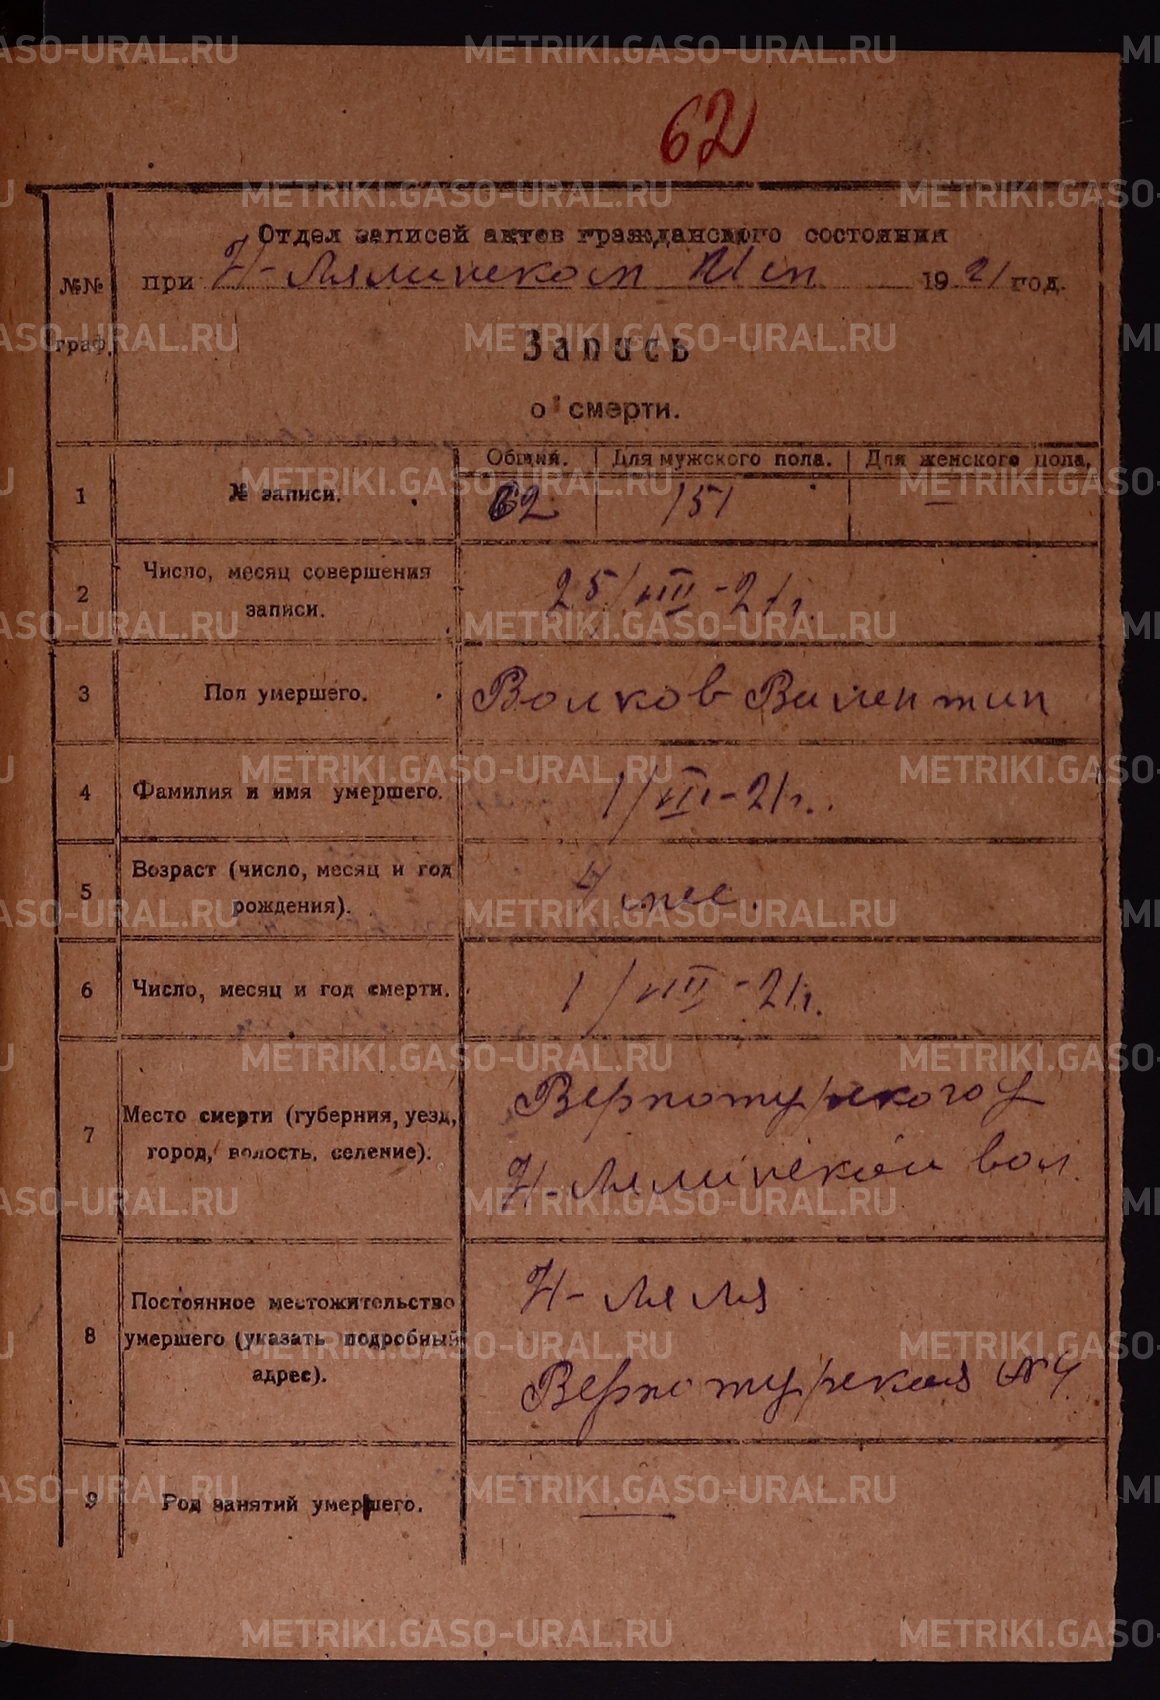 62
Отдел записей актов гражданского состояния
при Н-Лялинском Исп 1921 год.
№№ граф.
Запись
о смерти.
Общий. Для мужского пола. Для женского пола.
1 № записи. 62 151 —
2 Число, месяц совершения 25/VIII-21г.
записи.
3 Пол умершего. Волков Валентин
4 Фамилия и имя умершего.
5 Возраст (число, месяц и год
рождения). мес.
6 Число, месяц и год смерти. 1/VIII-21г.
7 Место смерти (губерния, уезд, Верхотурского у
город, волость, селение). Н-Лялинской вол.
8 Постоянное местожительство Н-Ляля
умершего (указать подробный
адрес). Верхотурская №4
9 Род занятий умершего. —
METRIKI.GASO-URAL.RU